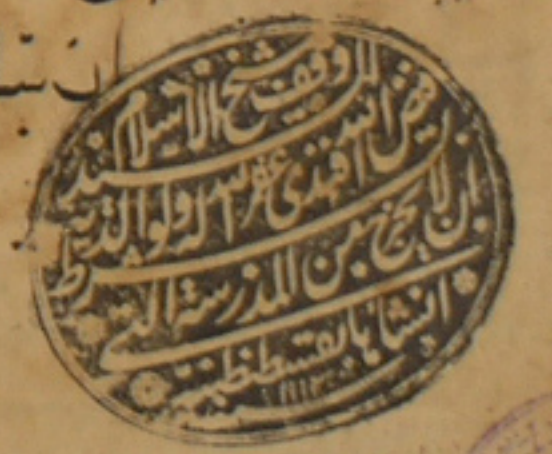 وقف شيخ الاسلام السيد
فيض الله افندى غفر الله له ولوالديه
بشرط ان لا يخرج من المدرسة التي
انشاها بقسطنطينية
سنة ١١١٢